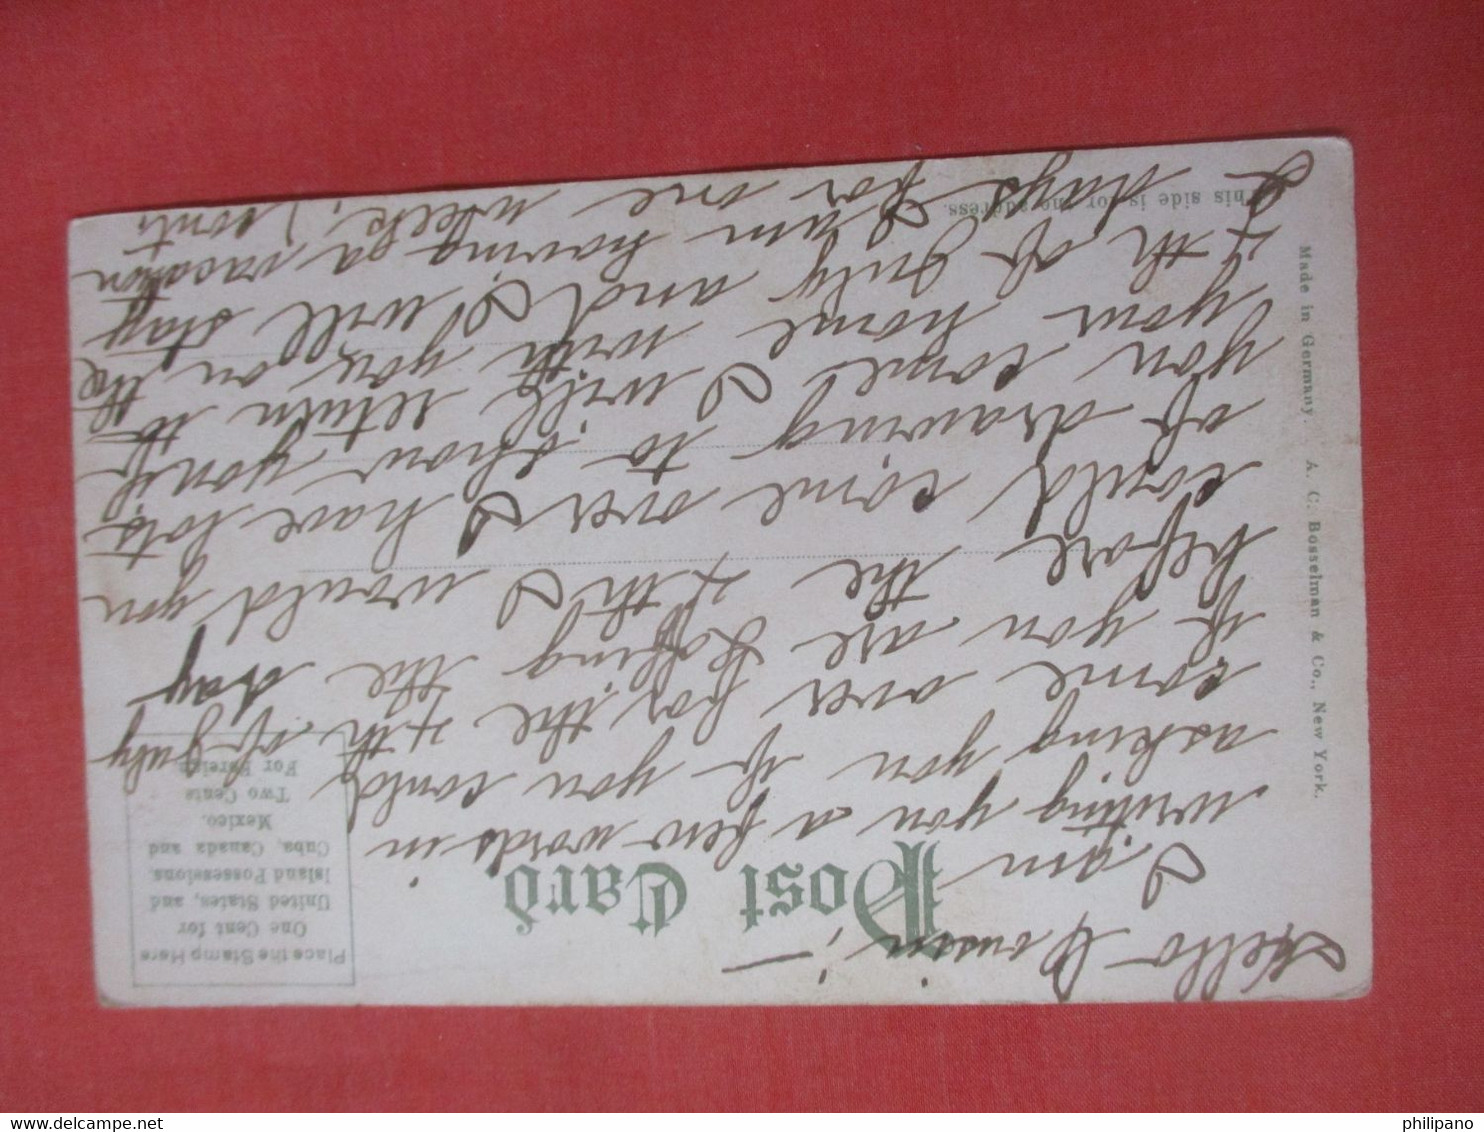 Hello Cousin; —
I am
writing you a few words in
asking you if you could
come over for the 4th of July
if you are the day
before the 4th I would you
could come over I have lots
of drawing to show you if
you come I will return to the
your home with you on the
4th of July and I will stay
2 days I am having a vacation
for one week, ) conti
Post Card.
Place the Stamp Here
One Cent for
United States, and
Island Possessions.
Cuba, Canada and
Mexico.
Two Cents
For Foreign.
This side is for the address.
Made in Germany. A. C. Bosselman & Co., New York.
philipano
delcampe.net